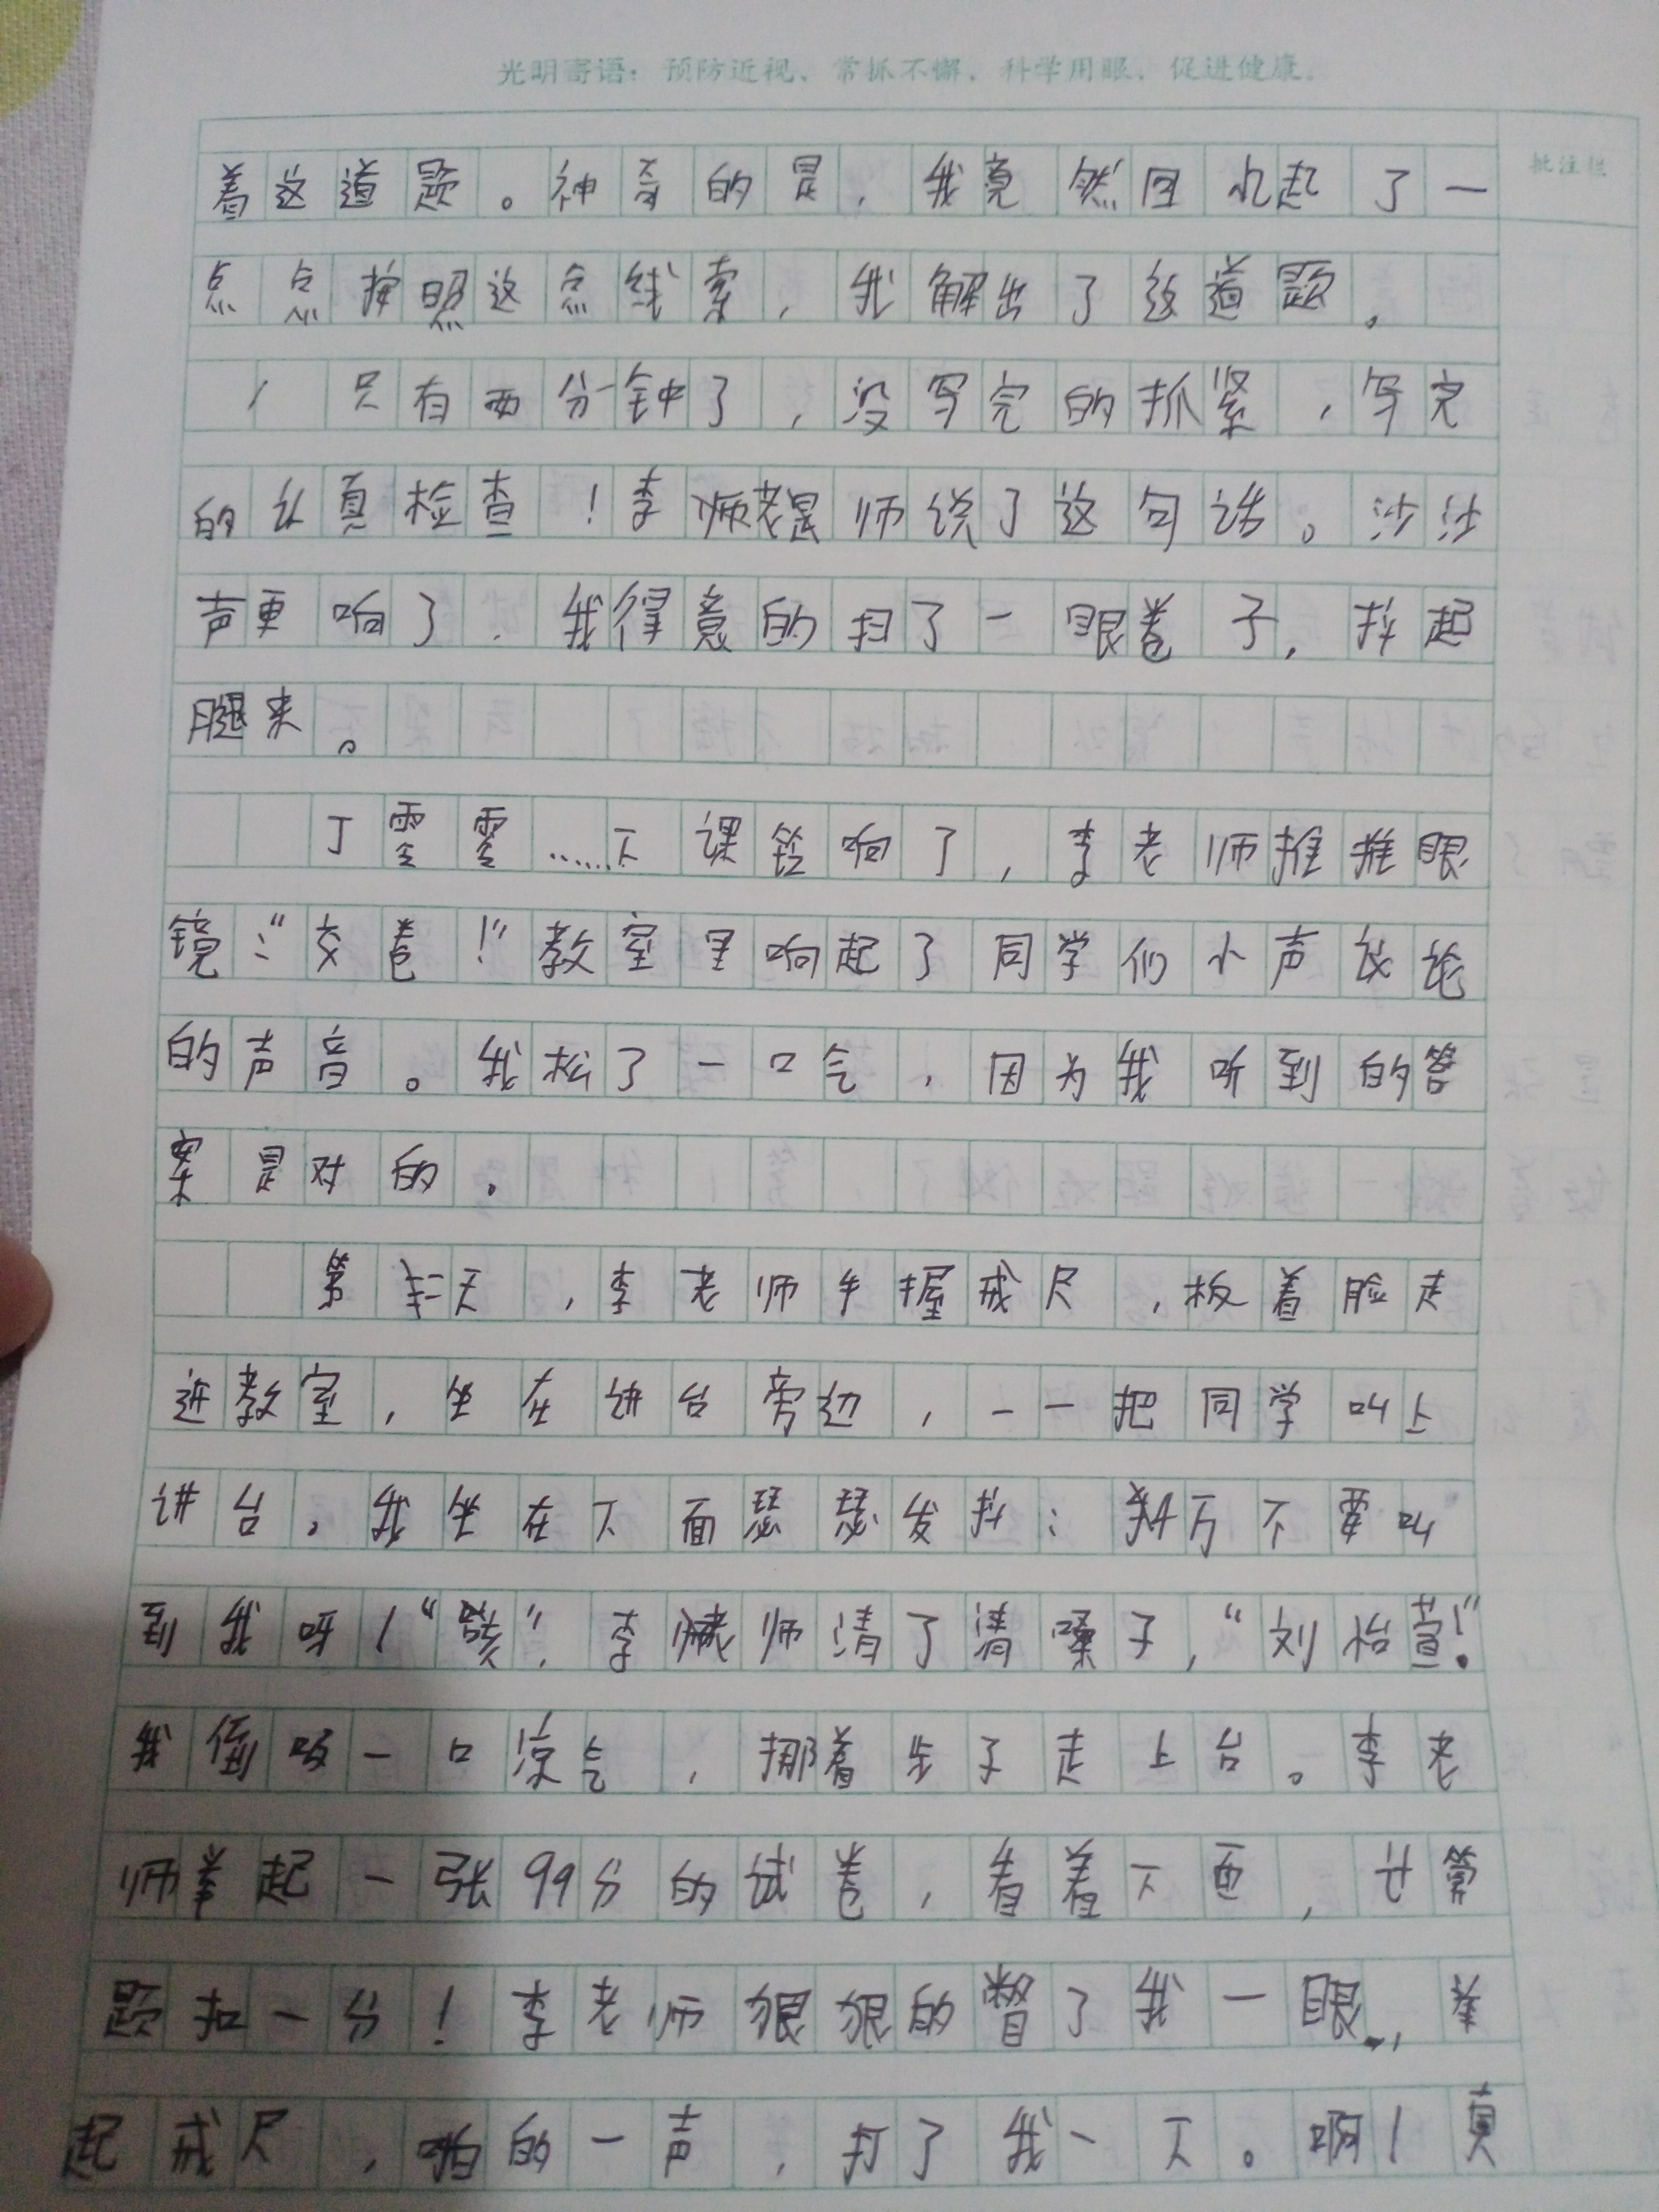 光明寄语：预防近视、常抓不懈、科学用眼、促进健康。
批注栏
着这道题。神奇的是，我竟然回忆起了一
点点按照这点线索，我解出了这道题。
只有两分钟了，没写完的抓紧，写完
的认真检查！李老师说了这句话。沙沙
声更响了，我得意的扫了一眼卷子，抖起
腿来。
丁零零……下课铃响了，李老师推推眼
镜：“交卷！”教室里响起了同学们小声议论
的声音。我松了一口气，因为我听到的答
案是对的。
第二天，李老师手握戒尺，板着脸走
进教室，坐在讲台旁边，一一把同学叫上
讲台。我坐在下面瑟瑟发抖：千万不要叫
到我呀！“咳”，李老师清了清嗓子，“刘怡萱！”
我倒吸一口凉气，挪着步子走上台。李老
师拿起一张99分的试卷，看着下面，计算
题扣一分！李老师狠狠的瞥了我一眼，拿
起戒尺，啪的一声，打了我一下。啊！真